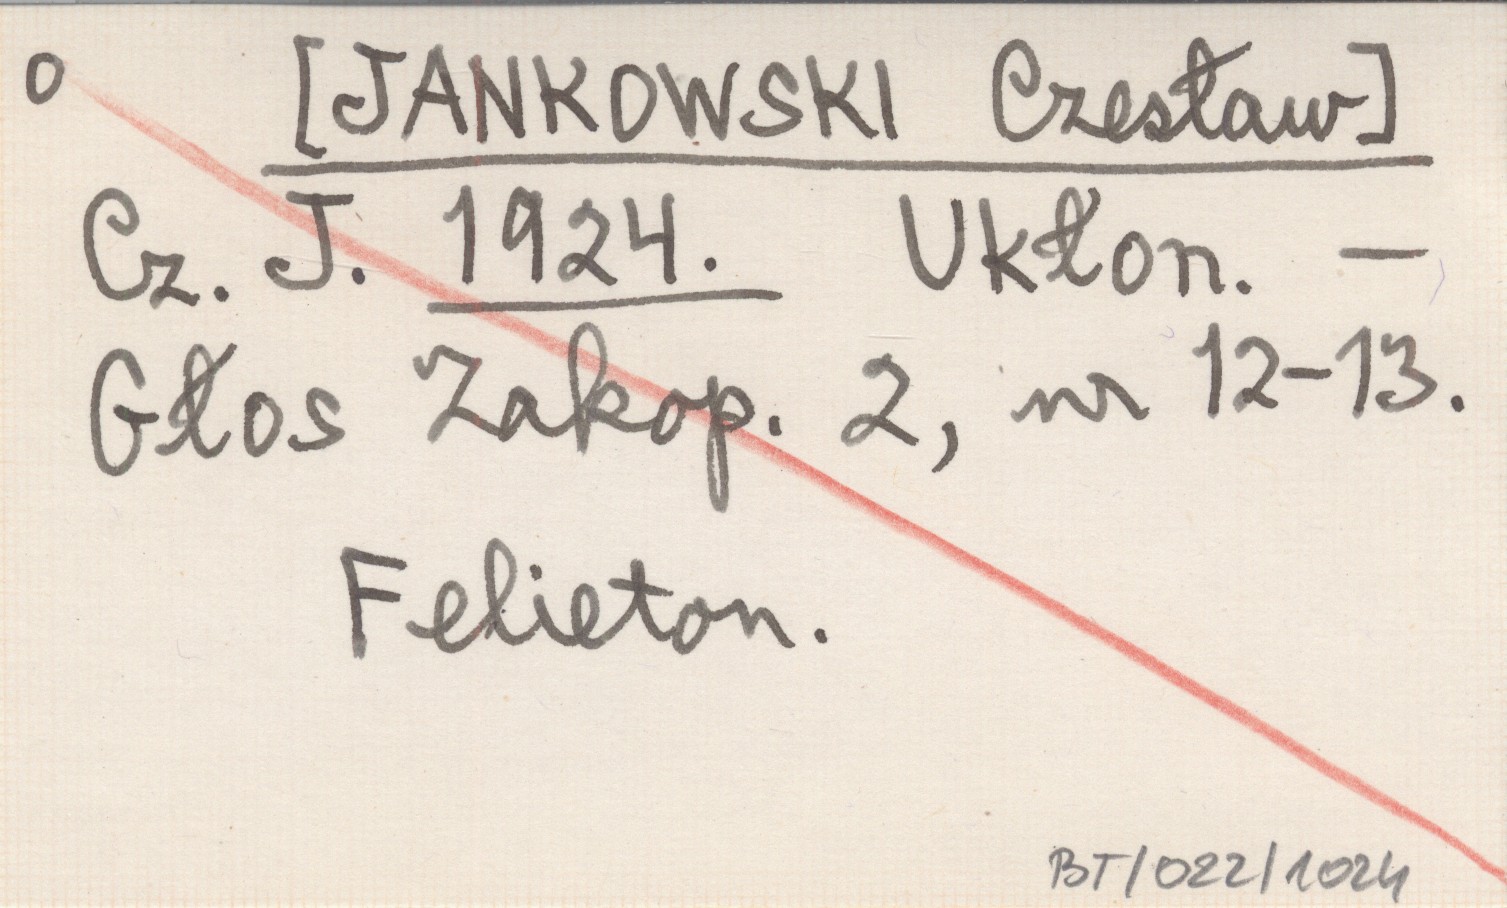 o [JANKOWSKI Czesław]
Cz. J. 1924. Ukłon. —
Głos Zakop. 2, nr 12-13.
Felieton.
BT/022/1024